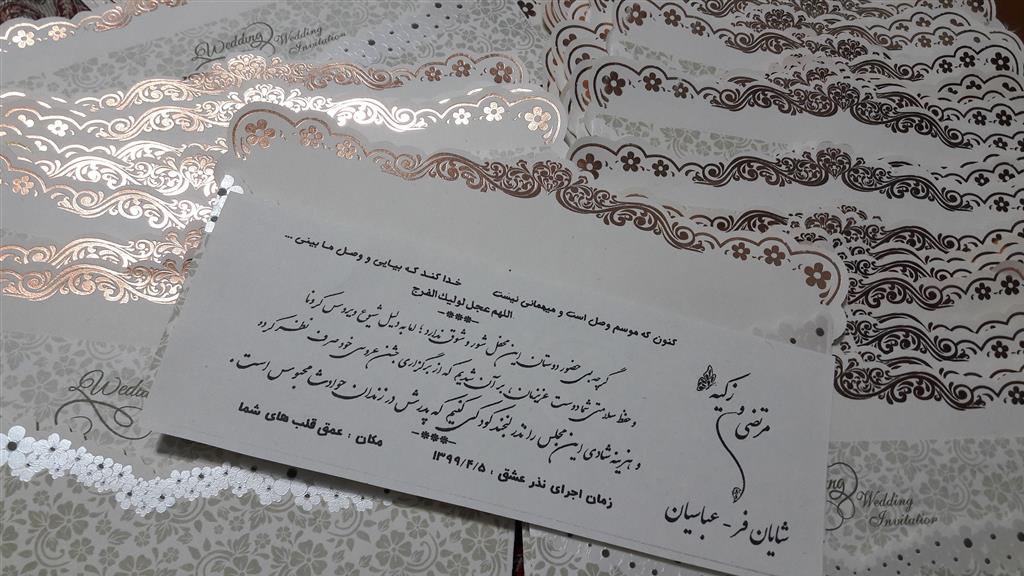 Wedding
Wedding
Invitation
کنون که موسم وصل است و میهمانی نیست
خدا کند که بیایی و وصل ما بینی ...
اللهم عجل لولیك الفرج
-***-
گرچه بی حضور دوستان این محفل شور و شوق ندارد؛ اما به دلیل شیوع ویروس کرونا
و حفظ سلامتی شما دوست عزیزمان، بر آن شدیم که از برگزاری جشن عروسی خود صرف نظر کرده
و هزینه شادی این مجلس را نذر لبخند کودکی کنیم که پدرش در زندان حوادث محبوس است.
-***-
زمان اجرای نذر عشق : ۱۳۹۹/۴/۵
مکان : عمق قلب های شما
زکیه
و
مرتضی
شایان فر - عباسیان
Wedding
Invitation